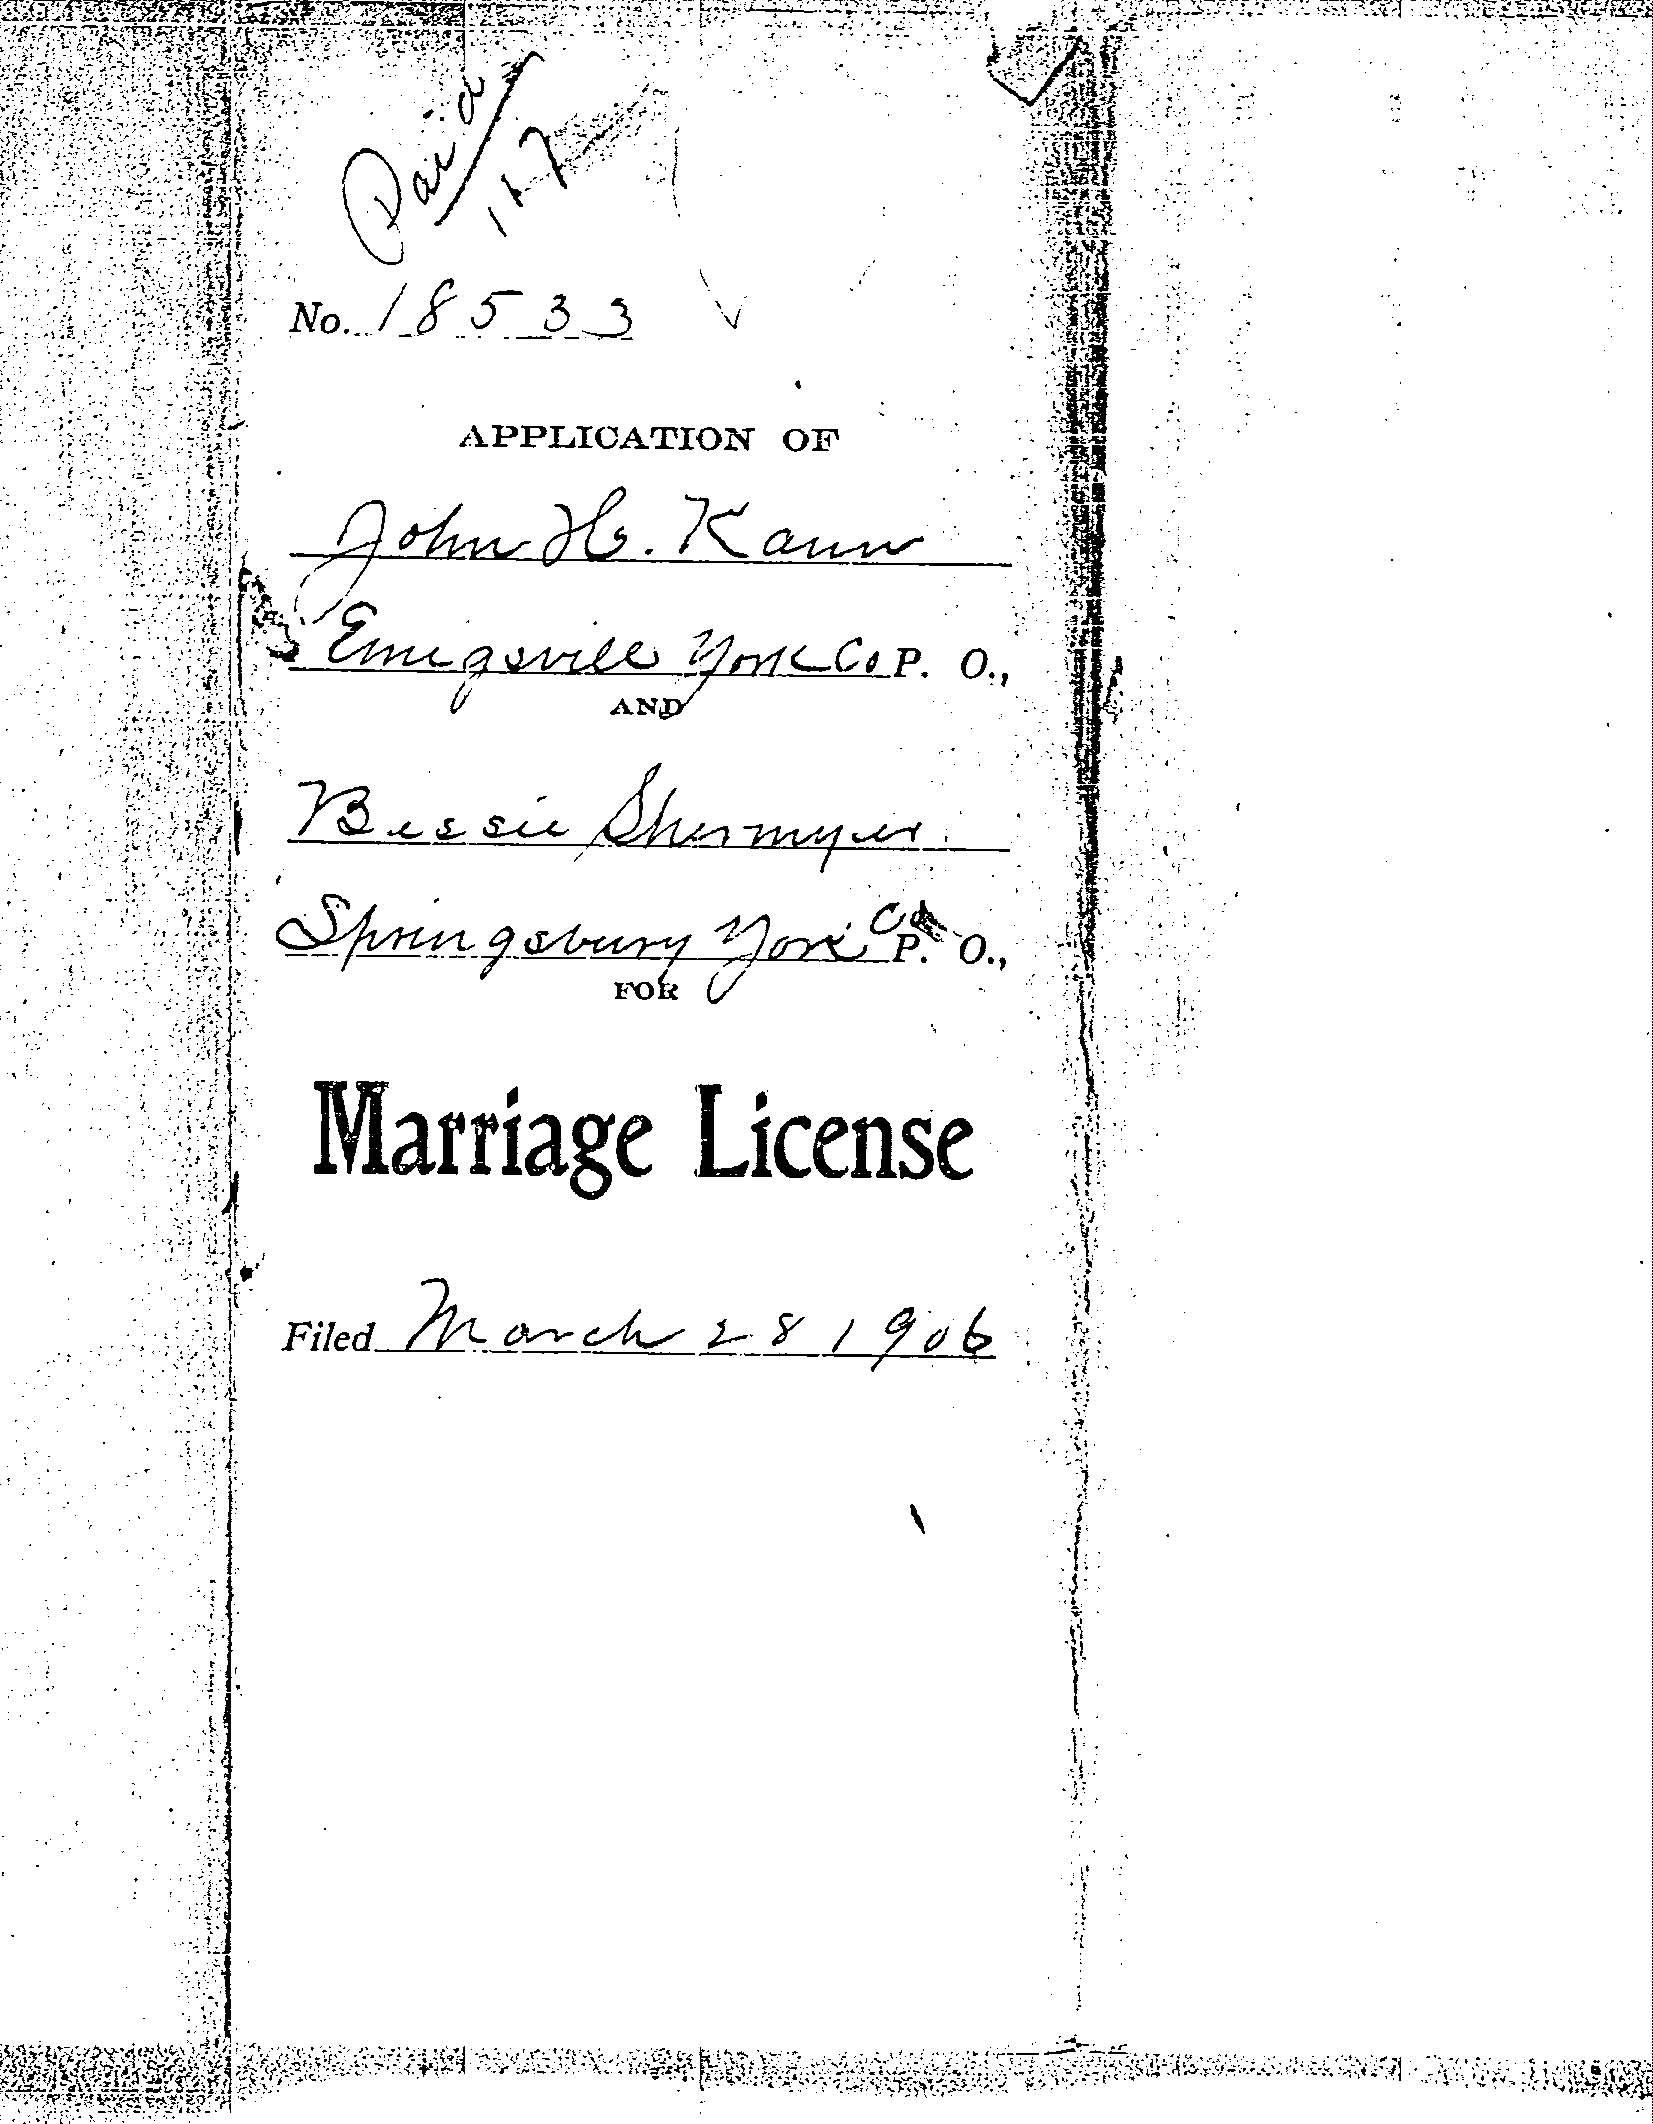 Paid
No. 18533
APPLICATION OF
John H. Kann
Emigsville York Co P. O.,
AND
Bessie Shermyer
Springsbury York Co P. O.,
FOR
Marriage License
Filed March 28 1906